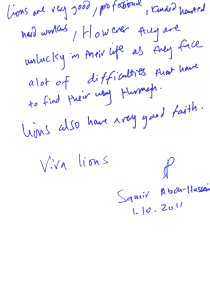 Lions are very good, professional, kind hearted
hard workers, However they are
unlucky in their life as they face
alot of difficulties that have
to find their way through.
Lions also have a very good faith.
Viva lions
Samir Abou-Hussein
1.10.2011